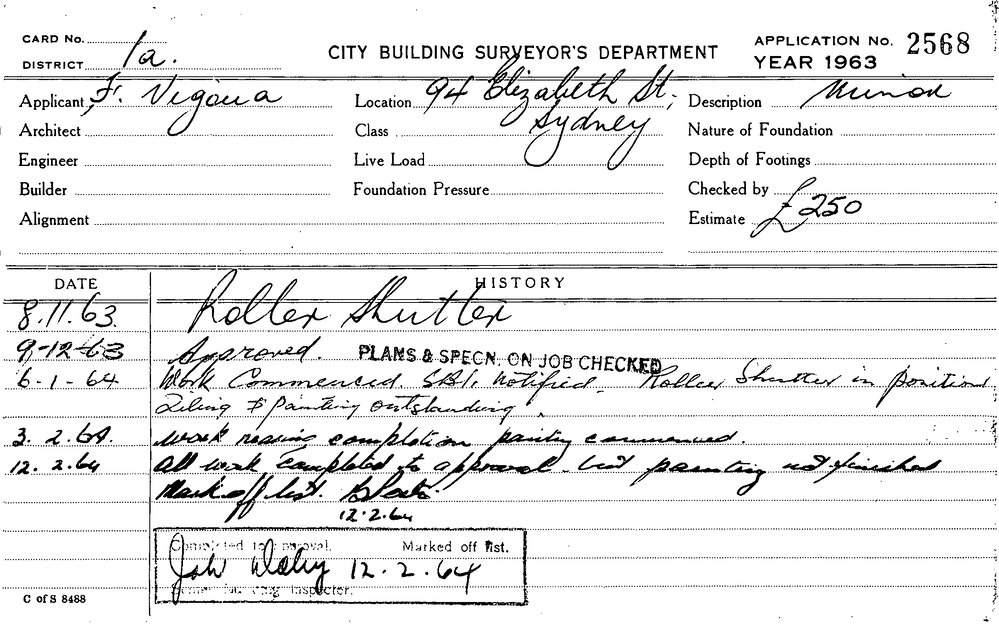 CARD No.
DISTRICT 1a.
CITY BUILDING SURVEYOR'S DEPARTMENT
APPLICATION No. 2568
YEAR 1963
Applicant F. Vigona
Location 94 Elizabeth St,
Sydney
Description Minor
Architect
Class
Nature of Foundation
Engineer
Live Load
Depth of Footings
Builder
Foundation Pressure
Checked by
Alignment
Estimate £250
DATE HISTORY
8.11.63. Roller Shutter
9-12-63 Approved. PLANS & SPECN. ON JOB CHECKED
6-1-64 Work Commenced. notified. Roller Shutter in position
Tiling & Painting outstanding.
3.2.64. Work nearing completion painting commenced.
12.2.64 All work completed to approval but painting not finished
Mark off list.
12.2.64
Completed to approval. Marked off list.
John 12.2.64
Inspector.
C of S 8488